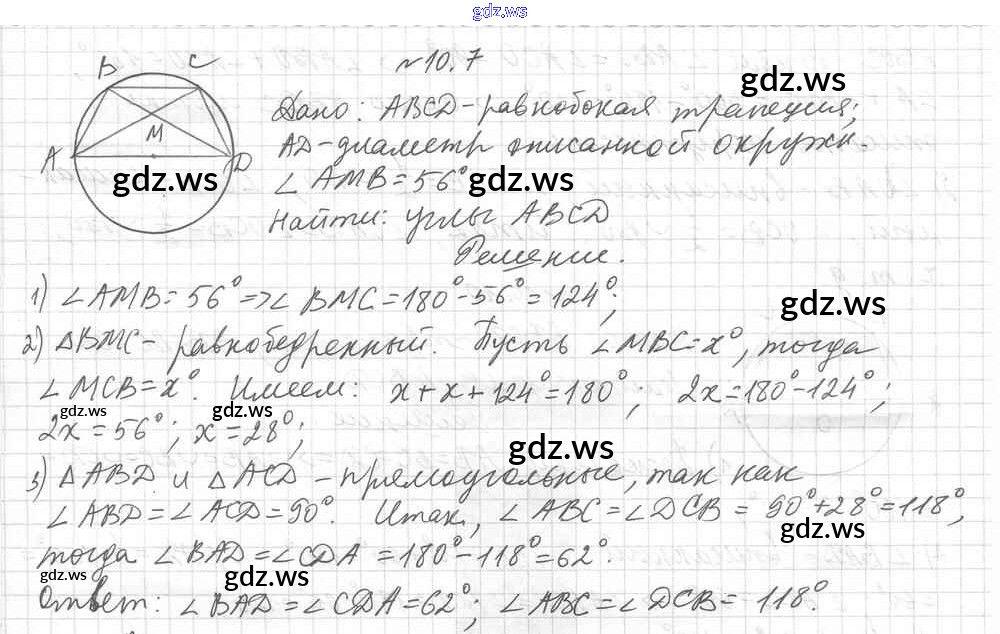 gdz.ws
№10.7
B C
gdz.ws
Дано: ABCD-равнобокая трапеция;
M
A D
AD-диаметр описанной окружн.
gdz.ws
∠AMB=56° gdz.ws
Найти: углы ABCD
Решение.
1) ∠AMB=56°=>∠BMC=180°-56°=124°;
gdz.ws
2) △BMC- равнобедренный. Пусть ∠MBC=x°, тогда
∠MCB=x°. Имеем: x+x+124°=180°; 2x=180°-124°;
gdz.ws gdz.ws
2x=56°; x=28°;
gdz.ws
3) △ABD и △ACD-прямоугольные, так как
∠ABD=∠ACD=90°. Итак, ∠ABC=∠DCB= 90°+28°=118°,
gdz.ws
тогда ∠BAD=∠CDA=180°-118°=62°.
gdz.ws gdz.ws
Ответ: ∠BAD=∠CDA=62°; ∠ABC=∠DCB=118°.